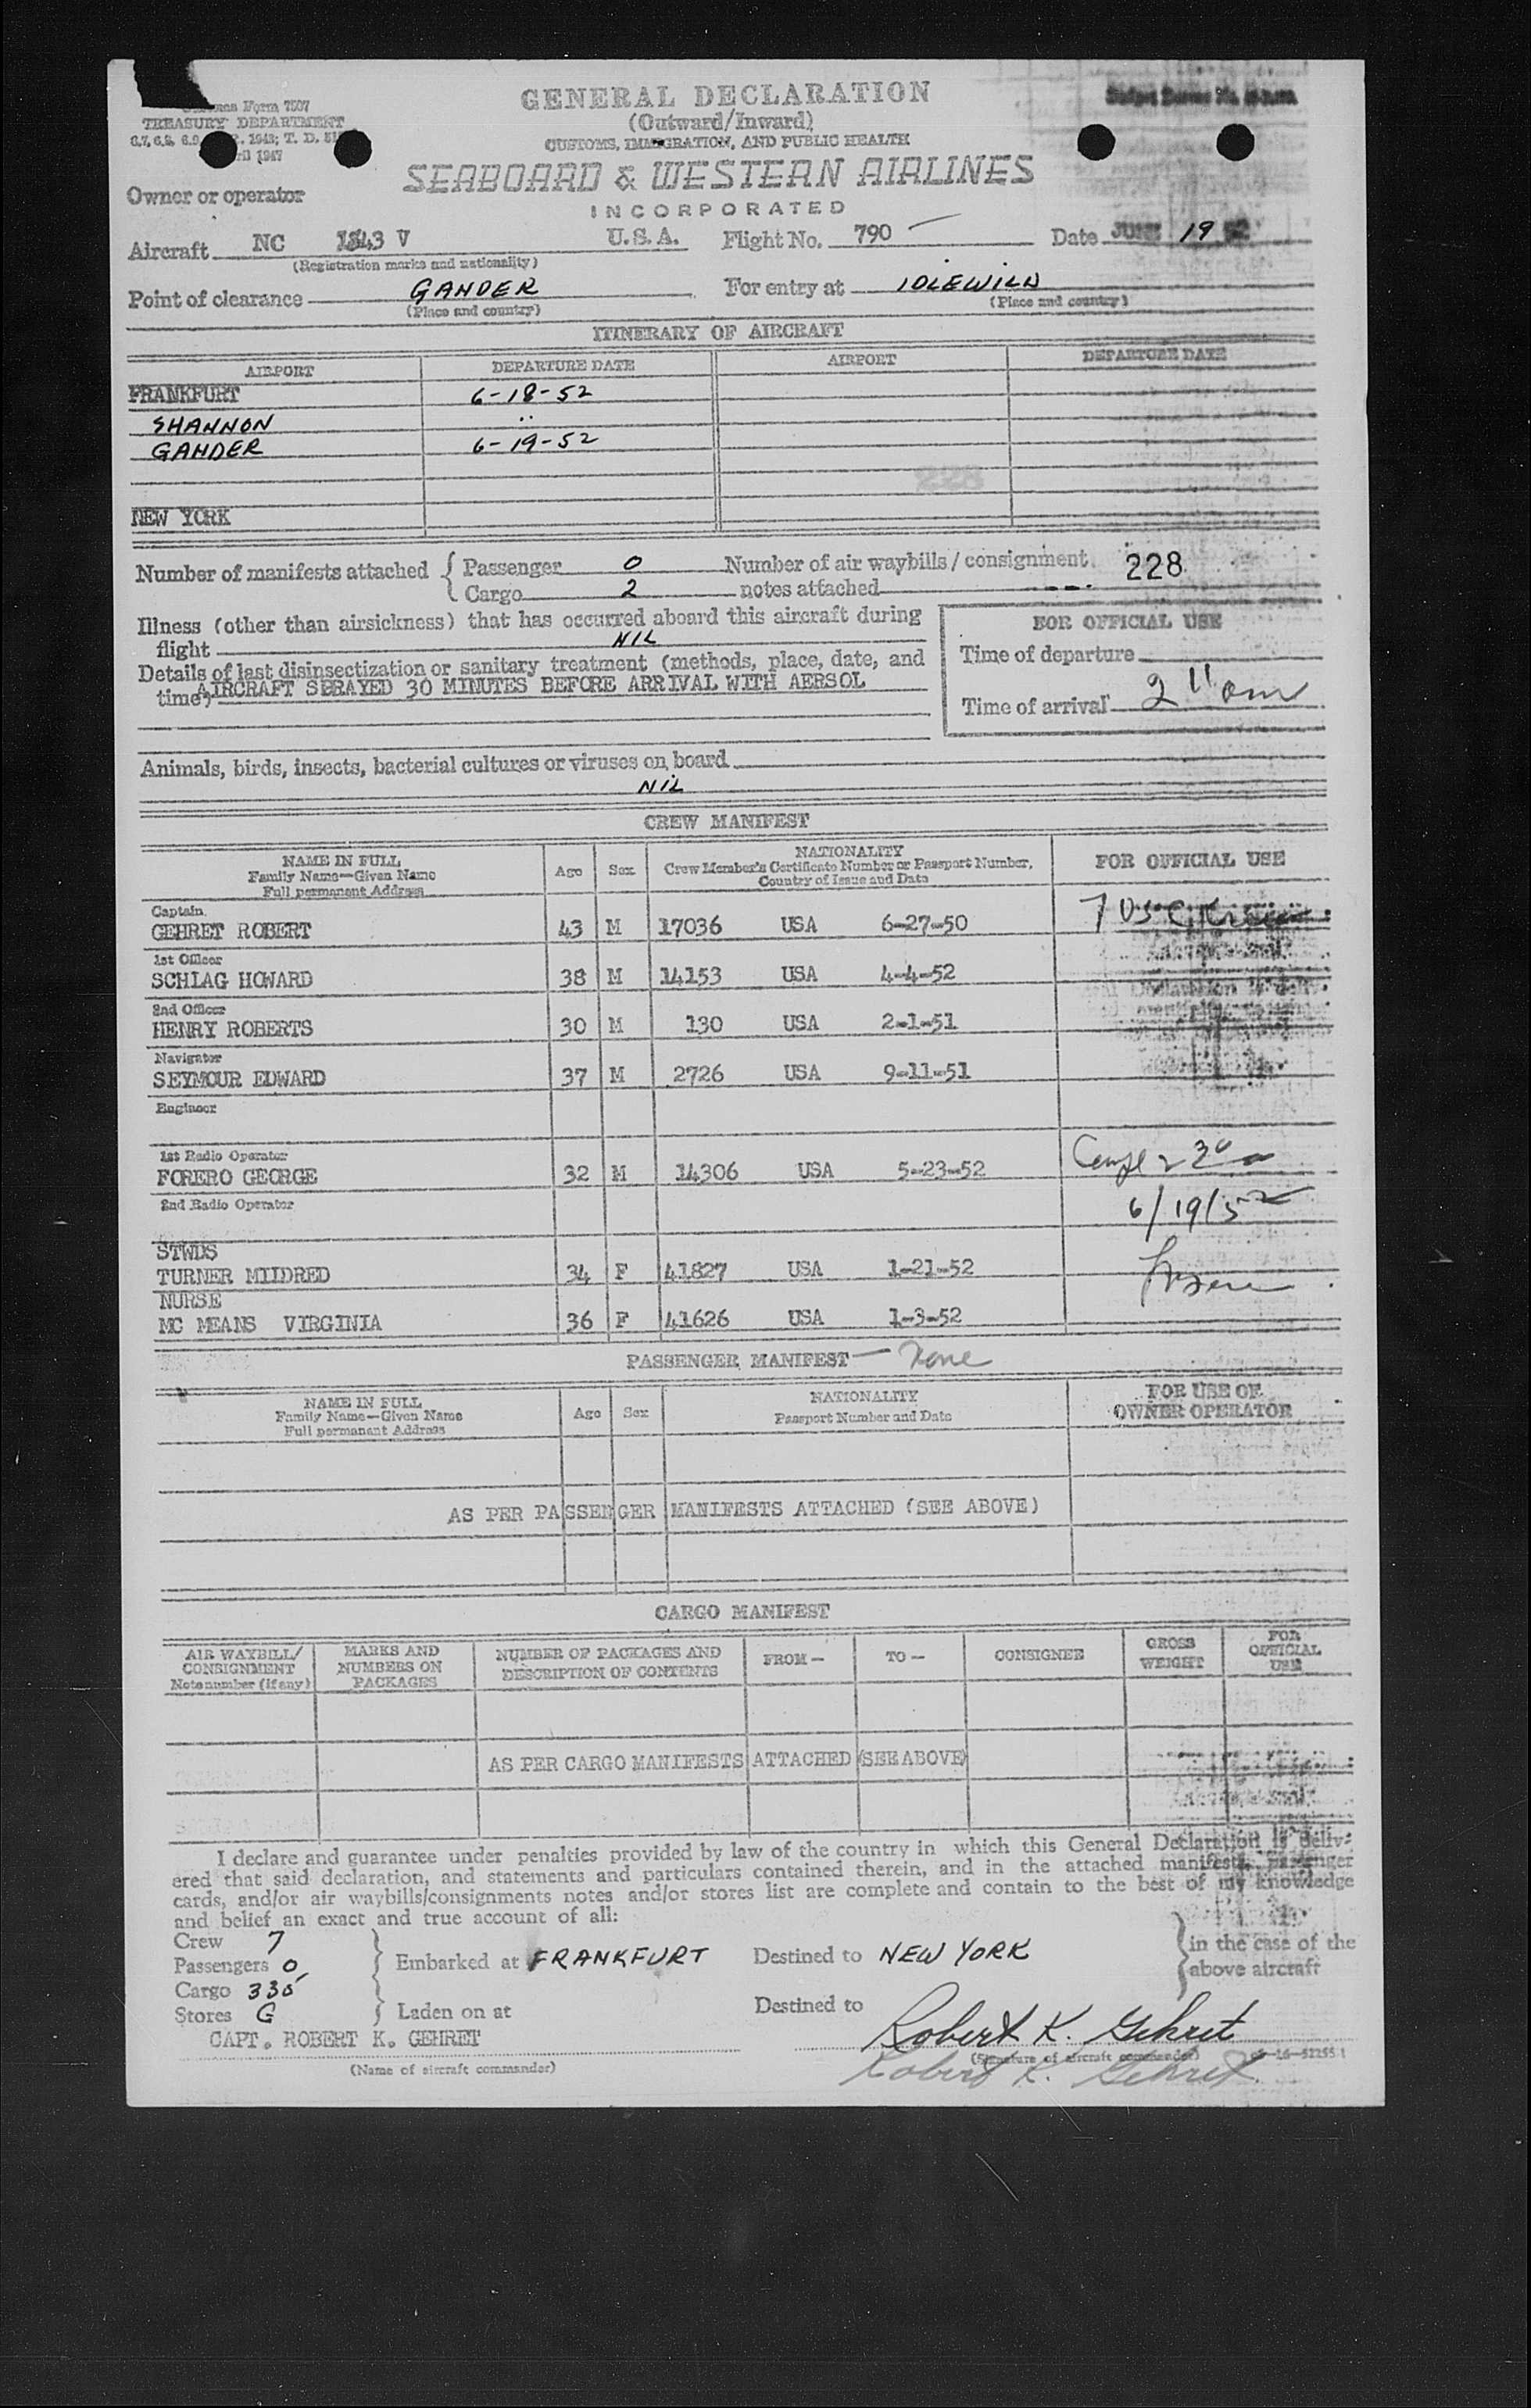 GENERAL DECLARATION
(Outward/Inward)
CUSTOMS, IMMIGRATION, AND PUBLIC HEALTH
Form 7507
TREASURY DEPARTMENT
1947
SEABOARD & WESTERN AIRLINES
INCORPORATED
Owner or operator
Aircraft NC 1543 V U.S.A. Flight No. 790 Date JUNE 19 52
(Registration marks and nationality)
Point of clearance GANDER For entry at IDLEWILD
(Place and country) (Place and country)
ITINERARY OF AIRCRAFT
AIRPORT DEPARTURE DATE AIRPORT DEPARTURE DATE
FRANKFURT 6-18-52
SHANNON "
GANDER 6-19-52
228
NEW YORK
Number of manifests attached { Passenger 0 Number of air waybills / consignment 228
Cargo 2 notes attached
Illness (other than airsickness) that has occurred aboard this aircraft during
flight NIL
FOR OFFICIAL USE
Details of last disinsectization or sanitary treatment (methods, place, date, and
time) AIRCRAFT SPRAYED 30 MINUTES BEFORE ARRIVAL WITH AERSOL
Time of departure
Time of arrival 2 11 am
Animals, birds, insects, bacterial cultures or viruses on board
NIL
CREW MANIFEST
NAME IN FULL Age Sex NATIONALITY FOR OFFICIAL USE
Family Name—Given Name Crew Member's Certificate Number or Passport Number,
Full permanent Address Country of Issue and Date
Captain
GEHRET ROBERT 43 M 17036 USA 6-27-50
1st Officer
SCHLAG HOWARD 38 M 14153 USA 4-4-52
2nd Officer
HENRY ROBERTS 30 M 130 USA 2-1-51
Navigator
SEYMOUR EDWARD 37 M 2726 USA 9-11-51
Engineer
1st Radio Operator
FORERO GEORGE 32 M 14306 USA 5-23-52
2nd Radio Operator
6/19/52
STWDS
TURNER MILDRED 34 F 41827 USA 1-21-52
NURSE
MC MEANS VIRGINIA 36 F 41626 USA 1-3-52
PASSENGER MANIFEST — None
NAME IN FULL Age Sex NATIONALITY FOR USE OF
Family Name—Given Name Passport Number and Date OWNER OPERATOR
Full permanent Address
AS PER PASSENGER MANIFESTS ATTACHED (SEE ABOVE)
CARGO MANIFEST
AIR WAYBILL/ MARKS AND NUMBER OF PACKAGES AND FROM— TO— CONSIGNEE GROSS FOR
CONSIGNMENT NUMBERS ON DESCRIPTION OF CONTENTS WEIGHT OFFICIAL
Note number (if any) PACKAGES USE
AS PER CARGO MANIFESTS ATTACHED (SEE ABOVE)
I declare and guarantee under penalties provided by law of the country in which this General Declaration is deliv-
ered that said declaration, and statements and particulars contained therein, and in the attached manifests, passenger
cards, and/or air waybills/consignments notes and/or stores list are complete and contain to the best of my knowledge
and belief an exact and true account of all:
Crew 7
Passengers 0 Embarked at FRANKFURT Destined to NEW YORK in the case of the
above aircraft
Cargo 335
Stores G Laden on at Destined to
CAPT. ROBERT K. GEHRET Robert K. Gehret
(Name of aircraft commander) (Signature of aircraft commander)
Robert K. Gehret